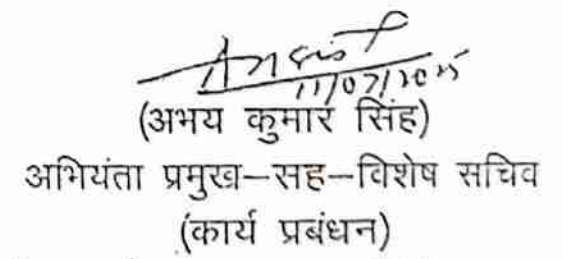 11/07/2025
(अभय कुमार सिंह)
अभियंता प्रमुख-सह-विशेष सचिव
(कार्य प्रबंधन)